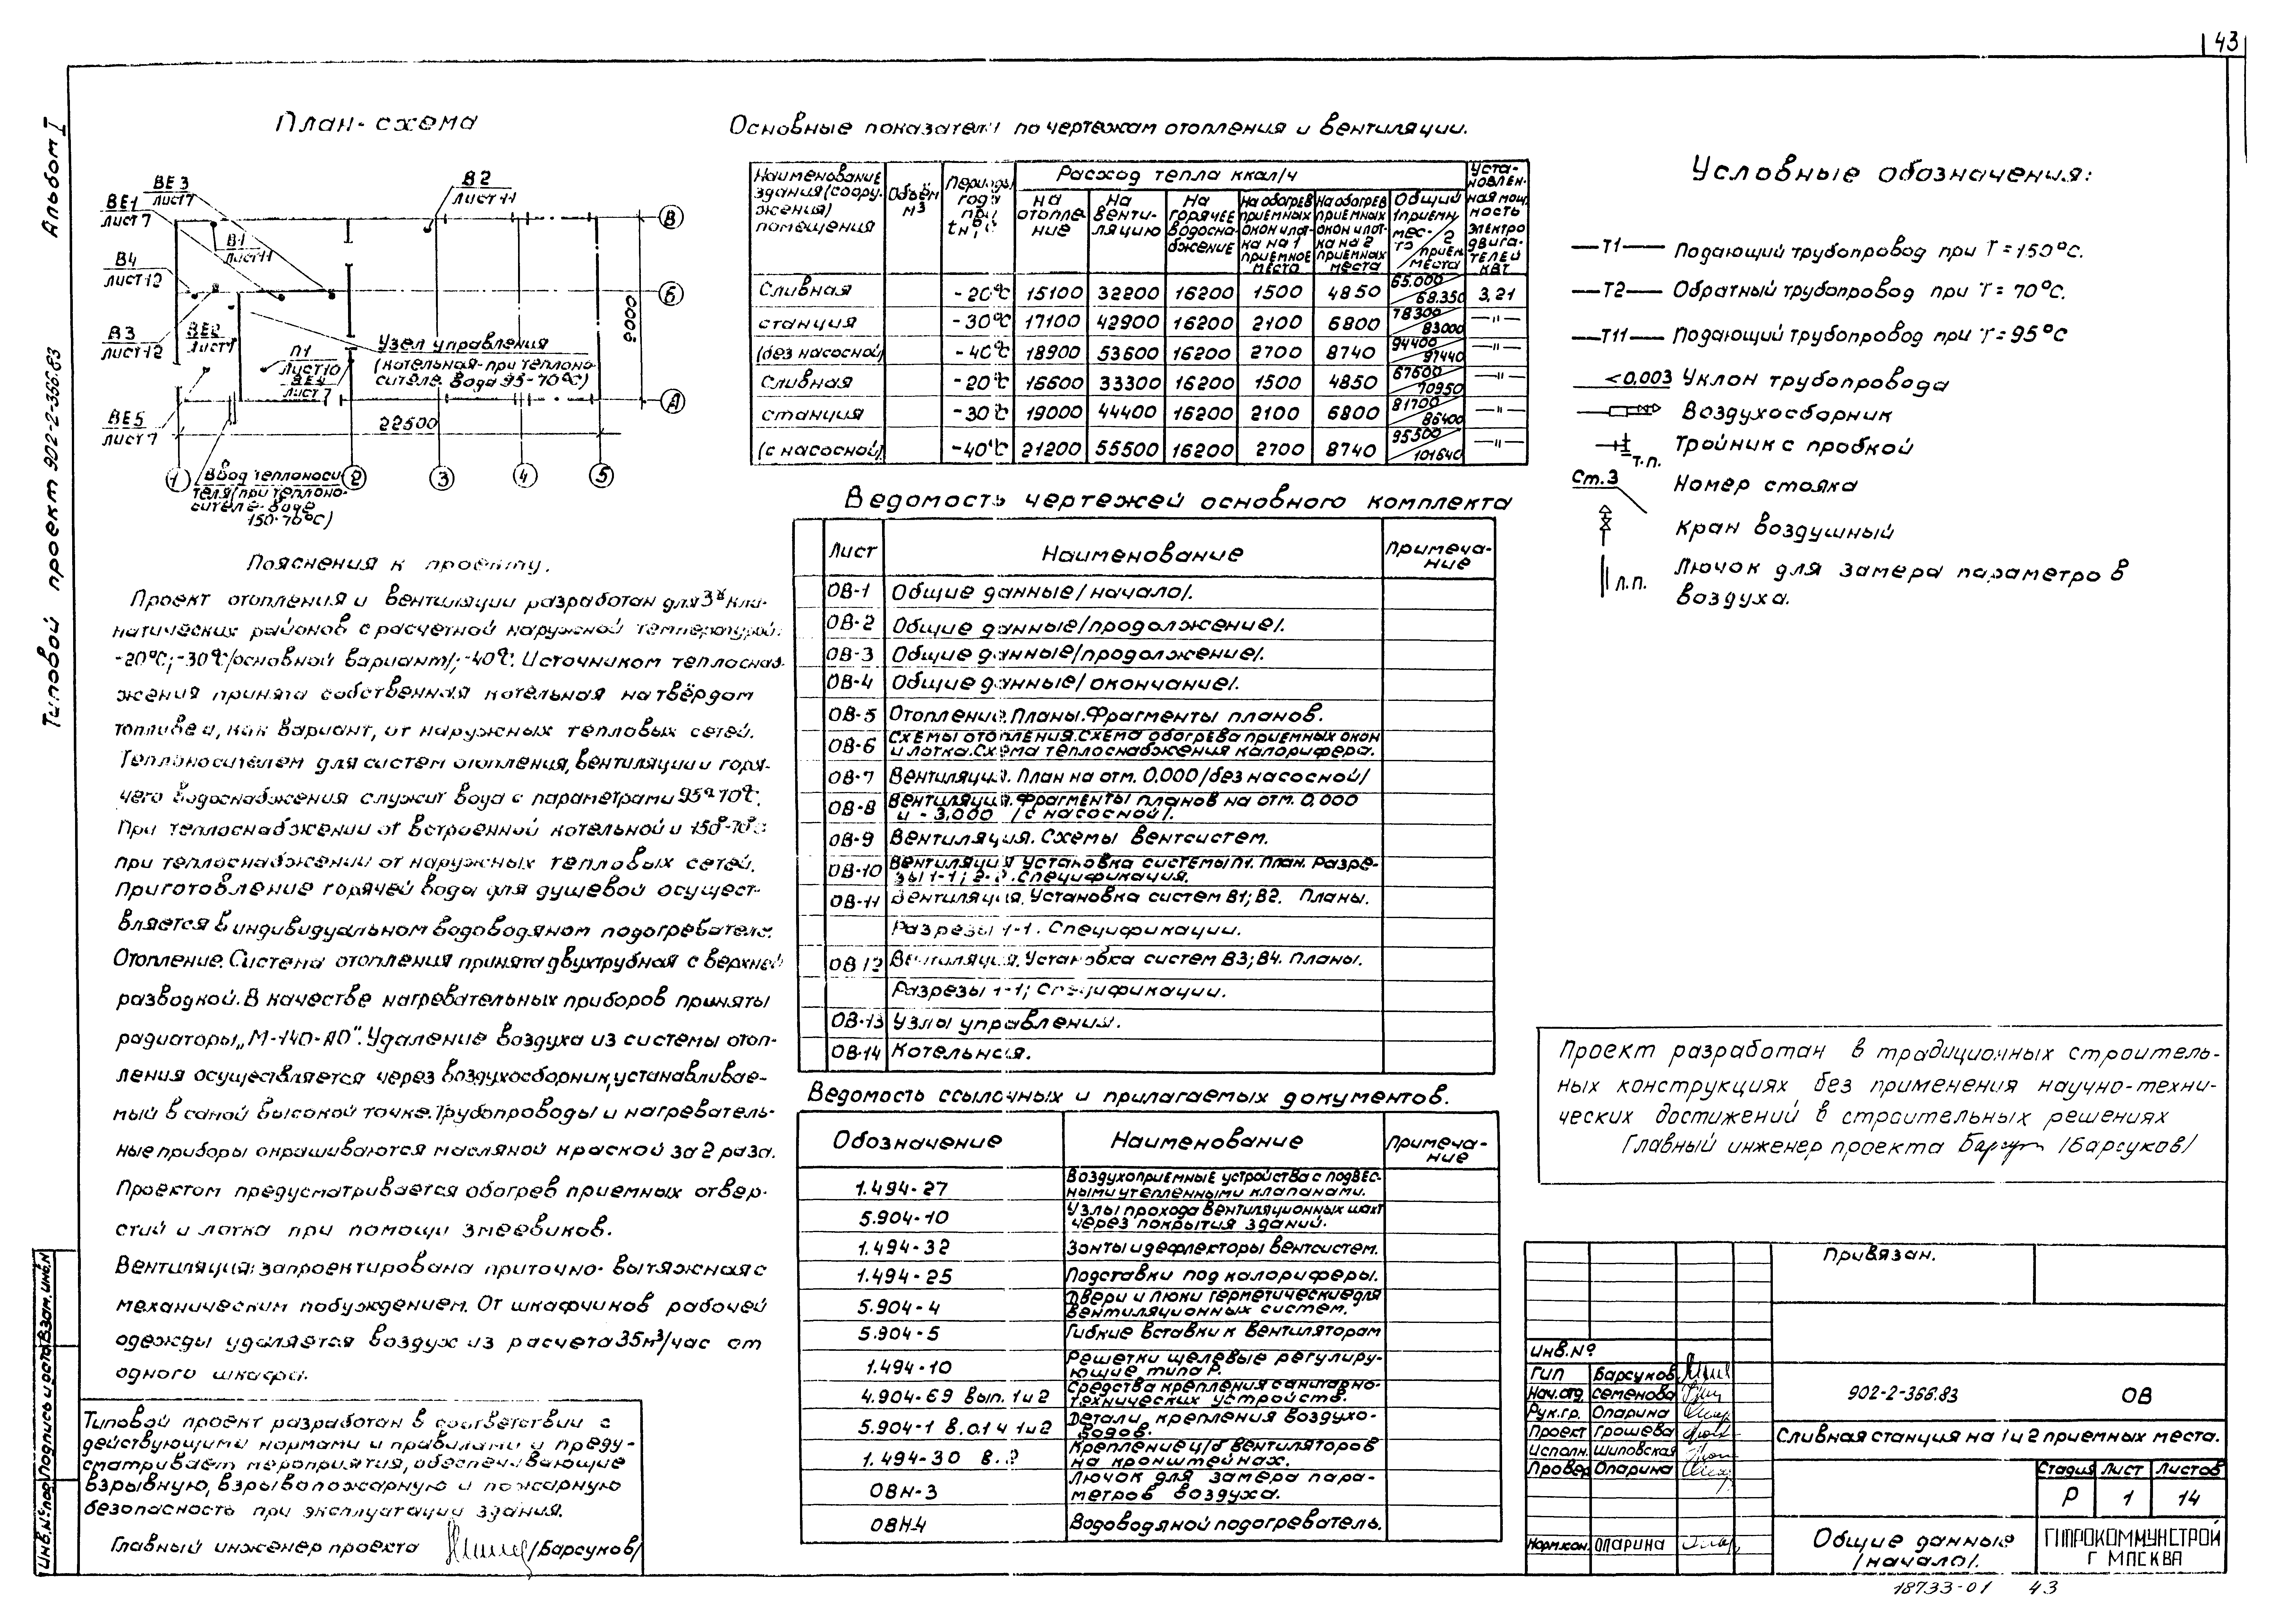 43
Альбом I
Типовой проект 902-2-366.83
План-схема
ВЕ3
лист7
ВЕ1
лист 7
В2
лист 11
В1
лист11
В4
лист 12
В3
лист 12
ВЕ2
П1
лист10
лист 7
ВЕ5
лист 7
Узел управления
(котельная-при теплоно-
сителе вода 95-70°С)
22500
6000
В
Б
А
1
2
3
4
5
Ввод теплоноси-
теля(при теплоно-
сителе-воде
150-70°С)
Пояснения к проекту.
Проект отопления и вентиляции разработан для 3х кли-
матических районов с расчетной наружной температурой:
-20°С; -30°С/основной вариант/; -40°С. Источником теплоснаб-
жения принята собственная котельная на твёрдом
топливе и, как вариант, от наружных тепловых сетей.
Теплоносителем для систем отопления, вентиляции и горя-
чего водоснабжения служит вода с параметрами 95°-70°С.
При теплоснабжении от встроенной котельной и 150°-70°С
при теплоснабжении от наружных тепловых сетей.
Приготовление горячей воды для душевой осущест-
вляется в индивидуальном водоводяном подогревателе.
Отопление. Система отопления принята двухтрубная с верхней
разводкой. В качестве нагревательных приборов приняты
радиаторы „М-140-АО". Удаление воздуха из системы отоп-
ления осуществляется через воздухосборник, устанавливае-
мый в самой высокой точке. Трубопроводы и нагреватель-
ные приборы окрашиваются масляной краской за 2 раза.
Проектом предусматривается обогрев приемных отвер-
стий и лотка при помощи змеевиков.
Вентиляция: запроектирована приточно-вытяжная с
механическим побуждением. От шкафчиков рабочей
одежды удаляется воздух из расчета 35м³/час от
одного шкафа.
Типовой проект разработан в соответствии с
действующими нормами и правилами и преду-
сматривает мероприятия, обеспечивающие
взрывную, взрывопожарную и пожарную
безопасность при эксплуатации здания.
Главный инженер проекта /Барсуков/
Основные показатели по чертежам отопления и вентиляции.
Наименование здания (соору-жения) помещения | Объём м³ | Периоды года при tн,°С | Расход тепла ккал/ч | Уста-новлен-ная мощ-ность электро двига-телей квт
на отопле-ние | На венти-ляцию | На горячее водосна-бжение | На обогрев приемных окон и лот-ка на 1 приемное место | На обогрев приемных окон и лот-ка на 2 приемных места | Общий 1 приемн. мес-то / 2 приемн. места
Сливная | -20°С | 15100 | 32200 | 16200 | 1500 | 4850 | 65.000 / 68.350 | 3,21
станция | -30°С | 17100 | 42900 | 16200 | 2100 | 6800 | 78300 / 83000 | —"—
(без насосной) | -40°С | 18900 | 53600 | 16200 | 2700 | 8740 | 94400 / 97440 | —"—
Сливная | -20°С | 16600 | 33300 | 16200 | 1500 | 4850 | 67600 / 70950 | —"—
станция | -30°С | 19000 | 44400 | 16200 | 2100 | 6800 | 81700 / 86400 | —"—
(с насосной) | -40°С | 21200 | 55500 | 16200 | 2700 | 8740 | 95500 / 101640 | —"—
Ведомость чертежей основного комплекта
Лист | Наименование | Примеча-ние
ОВ-1 Общие данные/начало/.
ОВ-2 Общие данные/продолжение/.
ОВ-3 Общие данные/продолжение/.
ОВ-4 Общие данные/окончание/.
ОВ-5 Отопление. Планы. Фрагменты планов.
ОВ-6 Схемы отопления. Схема обогрева приемных окон
и лотка. Схема теплоснабжения калорифера.
ОВ-7 Вентиляция. План на отм. 0,000 /без насосной/
ОВ-8 Вентиляция. Фрагменты планов на отм. 0,000
и -3,000 /с насосной/.
ОВ-9 Вентиляция. Схемы вентсистем.
ОВ-10 Вентиляция Установка системы П1. План. Разре-
зы 1-1; 2-2. Спецификация.
ОВ-11 Вентиляция. Установка систем В1; В2. Планы.
Разрезы 1-1. Спецификации.
ОВ 12 Вентиляция. Установка систем В3; В4. Планы.
Разрезы 1-1; Спецификации.
ОВ-13 Узлы управления.
ОВ-14 Котельная.
Ведомость ссылочных и прилагаемых документов.
Обозначение | Наименование | Примеча-ние
1.494-27 Воздухоприемные устройства с подвес-
ными утепленными клапанами.
5.904-10 Узлы прохода вентиляционных шахт
через покрытия зданий.
1.494-32 Зонты и дефлекторы вентсистем.
1.494-25 Подставки под калориферы.
5.904-4 Двери и люки герметические для
вентиляционных систем.
5.904-5 Гибкие вставки к вентиляторам
1.494-10 Решетки щелевые регулиру-
ющие типа Р.
4.904-69 вып. 1и2 Средства крепления санитарно-
технических устройств.
5.904-1 в.0.1 ч 1и2 Детали крепления воздухо-
водов.
1.494-30 в. Крепление ц/б вентиляторов
на кронштейнах.
ОВН-3 Лючок для замера пара-
метров воздуха.
ОВН-4 Водоводяной подогреватель.
Условные обозначения:
—Т1— Подающий трубопровод при Т=150°С.
—Т2— Обратный трубопровод при Т=70°С.
—Т11— Подающий трубопровод при Т=95°С
<0,003 Уклон трубопровода
Воздухосборник
Т.П. Тройник с пробкой
Ст.3 Номер стояка
Кран воздушный
Л.П. Лючок для замера параметров
воздуха.
Проект разработан в традиционных строитель-
ных конструкциях без применения научно-техни-
ческих достижений в строительных решениях
Главный инженер проекта /Барсуков/
Привязан.
Инв.№
ГИП Барсуков
Нач.отд Семенова
Рук.гр. Опарина
Проект Грошева
Исполн. Шиповская
Провер Опарина
Норм.кон. Опарина
902-2-366.83 ОВ
Сливная станция на 1и2 приемных места.
Стадия Лист Листов
Р 1 14
Общие данные
/начало/.
ГИПРОКОММУНСТРОЙ
Г МОСКВА
18733-01 43
Инв.№под Подпись и дата Взам.инв.№